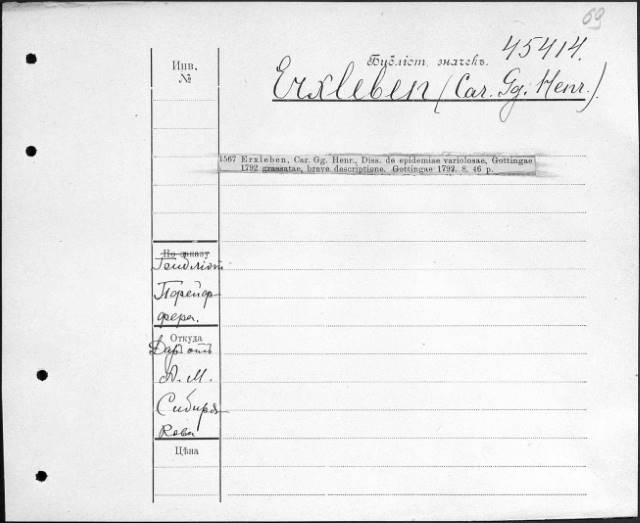 69
45414.
Инв.
№
Бубліот. значекъ.
Erxleben (Car. Gg. Henr.).
1567 Erxleben, Car. Gg. Henr., Diss. de epidemiae variolosae, Gottingae
1792 grassatae, breve descriptione. Gottingae 1792. 8. 46 p.
По заказу
Порейор-
фера.
Откуда
Даръ отъ
А. М.
Сибиря-
кова
Цѣна